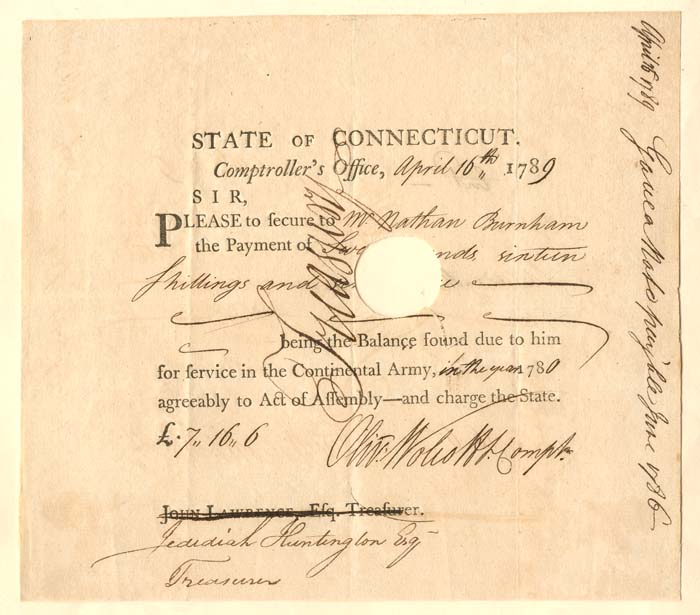 STATE OF CONNECTICUT.
Comptroller's Office, April 16th 1789
SIR,
PLEASE to secure to Mr Nathan Burnham
the Payment of nds sixteen
Shillings and ce
being the Balance found due to him
for service in the Continental Army, in the year 1780
agreeably to Act of Assembly—and charge the State.
£. 7,, 16,, 6
Olivr. Wolcott Jr. Comptr.
JOHN LAWRENCE, Esq. Treasurer.
Jedidiah Huntington Esqr
Treasurer
April 16 1789 Gave a Note payable June 1786